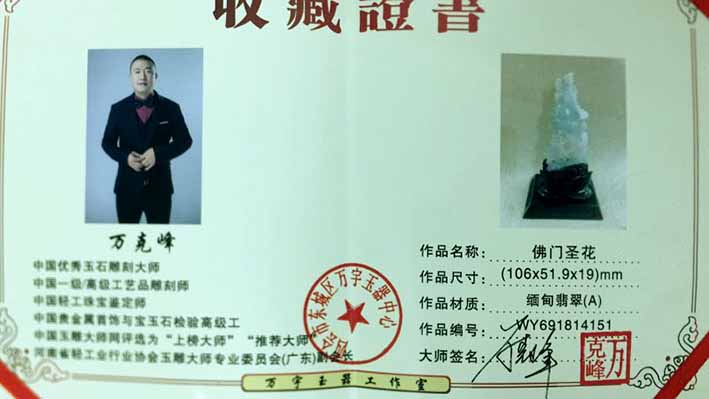 收藏證書
万克峰
中国优秀玉石雕刻大师
中国一级/高级工艺品雕刻师
中国轻工珠宝鉴定师
中国贵金属首饰与宝玉石检验高级工
中国玉雕大师网评选为“上榜大师”“推荐大师”
河南省轻工业行业协会玉雕大师专业委员会(广东)副会长
市东城区万宇玉器中心
作品名称: 佛门圣花
作品尺寸: (106x51.9x19)mm
作品材质: 缅甸翡翠(A)
作品编号: WY691814151
大师签名: 万克峰
万克峰
万宇玉器工作室